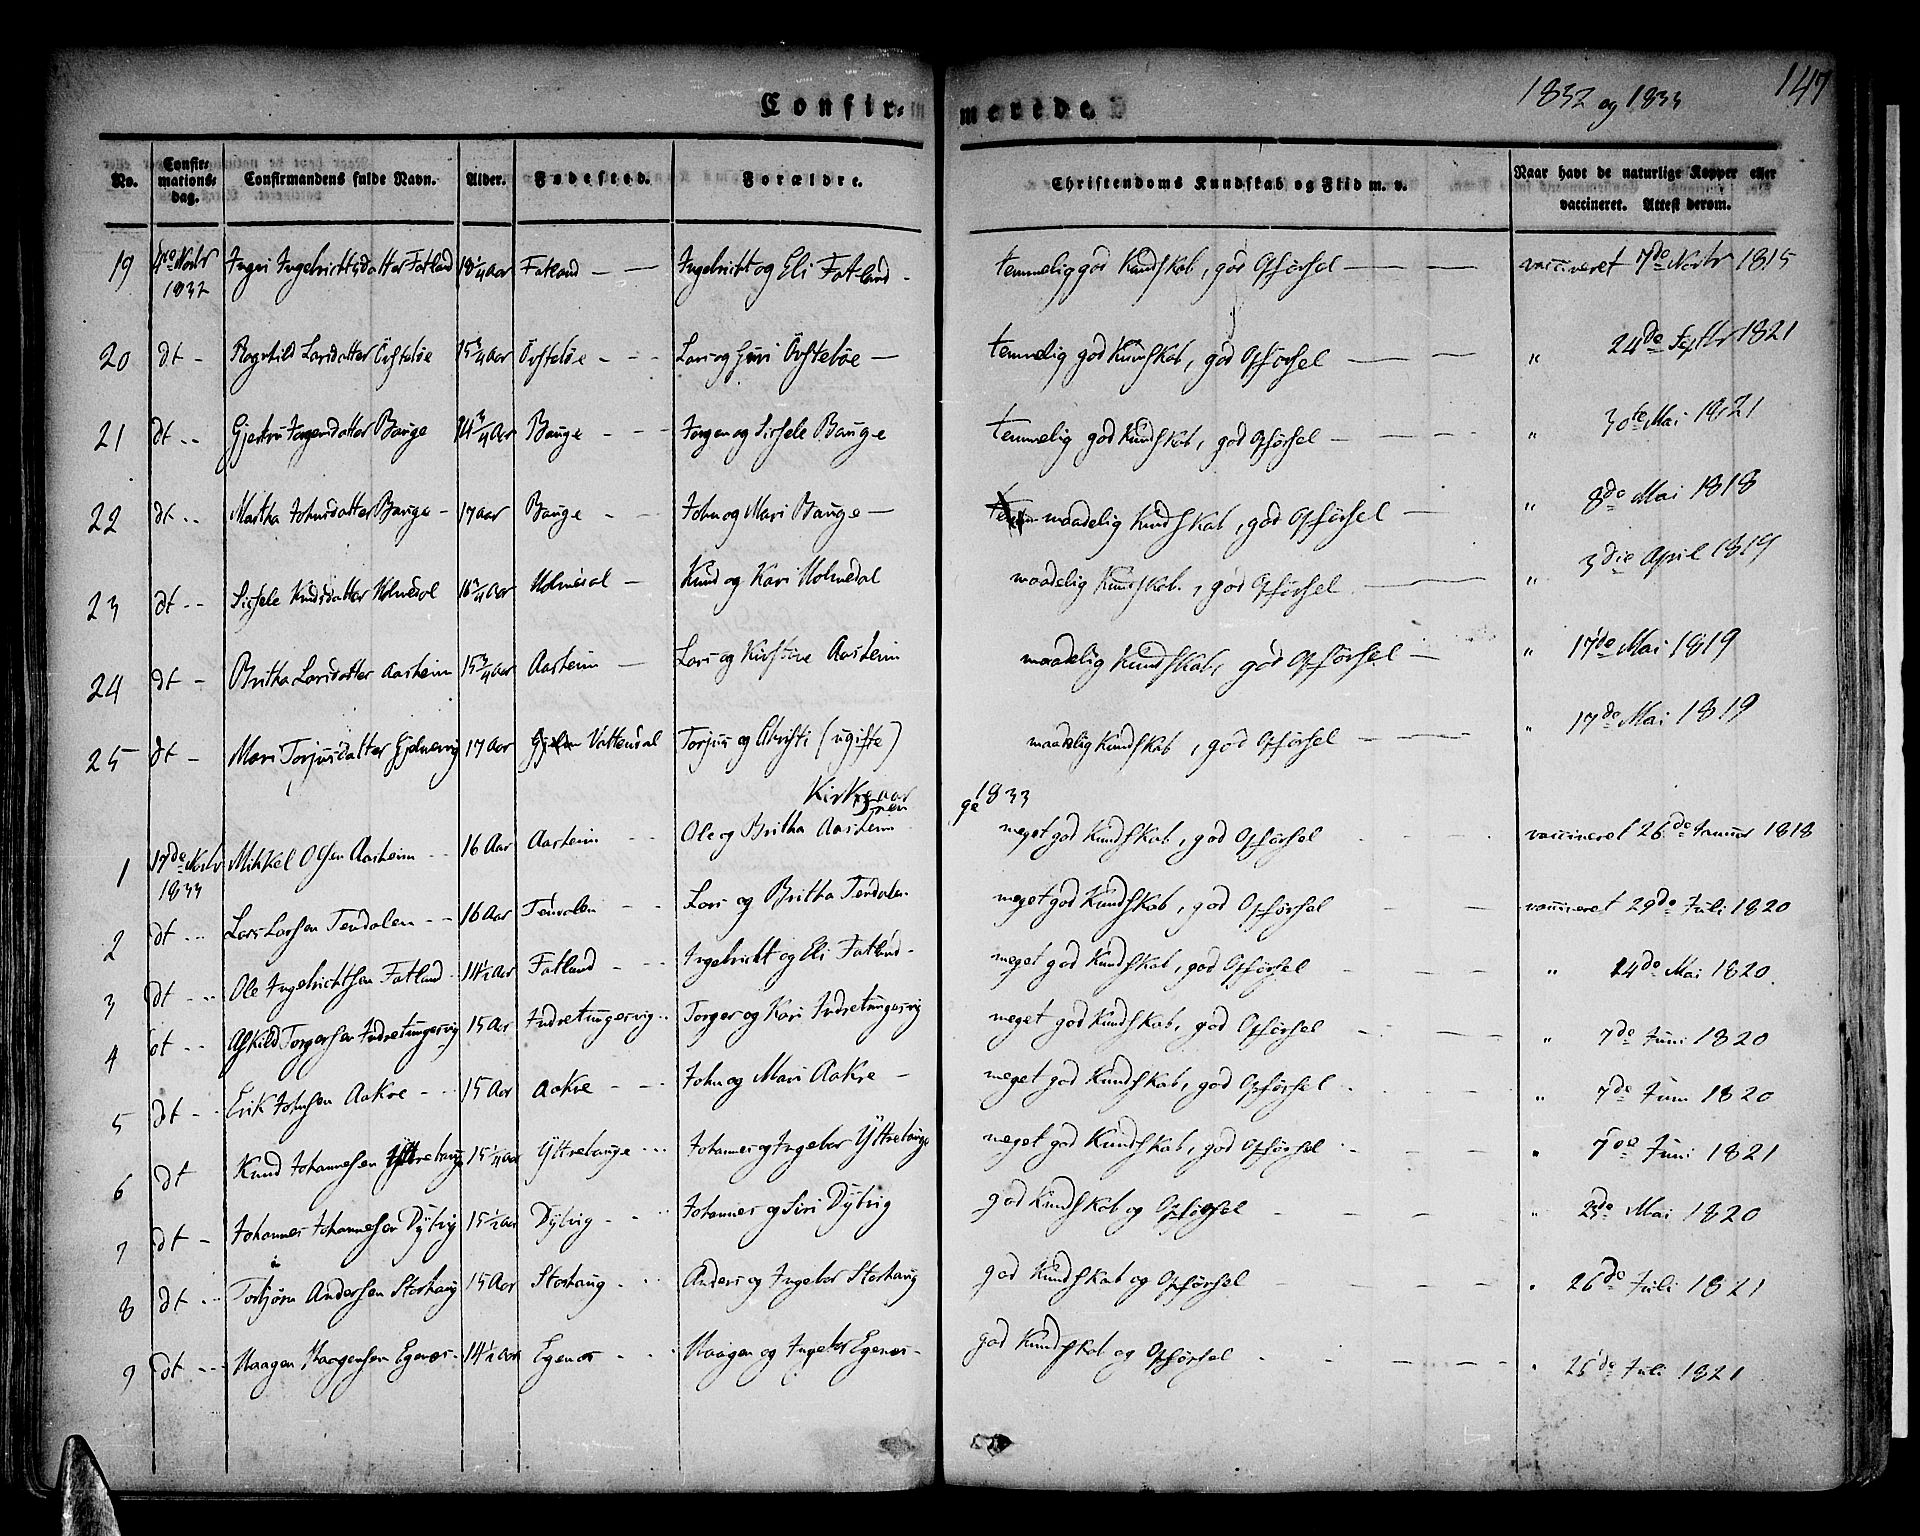 Confir-
merede.
1832 og 1833
147
No.
Confir-
mations-
dag.
Confirmandens fulde Navn.
Alder.
Fødested.
Forældre.
Christendoms Kundskab og Flid m. v.
Naar havt de naturlige Kopper eller
vaccineret. Attest derom.
19 4de Novbr 1832 Ingri Ingebrichtsdatter Fatland 18 1/4 Aar Fatland — — Ingebricht og Eli Fatland - temmelig god Kundskab, god Opførsel — — — vaccineret 7de Novbr 1815
20 dt - Ragnhild Larsdatter Øvstebøe 15 3/4 Aar Øvstebøe — — Lars og Guri Øvstebøe — temmelig god Kundskab, god Opførsel — — — " 24de Septbr 1821
21 dt -- Gjertru Jorgensdatter Bauge 14 3/4 Aar Bauge - -- Jorgen og Sissele Bauge temmelig god Kundskab, god Opførsel — — — " 30te Mai 1821
22 dt -- Martha Johnsdatter Bauge - 17 aar Bauge - — John og Mari Bauge — maadelig Kundskab, god Opførsel — — " 8de Mai 1818
23 dt -- Sissele Knudsdatter Holmedal 16 3/4 Aar Holmedal — Knud og Kari Holmedal maadelig Kundskab, god Opførsel — — " 3die April 1819
24 dt - Britha Larsdatter Aasheim 15 3/4 Aar Aasheim — Lars og Kirstine Aasheim maadelig Kundskab, god Opførsel — " 17de Mai 1819
25 dt - Mari Torjusdatter Gjelmervig 17 Aar Vattendal Torjus og Christi (ugifte) maadelig Kundskab, god Opførsel — — — " 17de Mai 1819
Kirkeaar 1833
1 17de Novbr 1833 Mikkel Olsen Aasheim -- 16 Aar Aasheim -- Ole og Britha Aasheim meget god Kundskab, god Opførsel vaccineret 26de Januar 1818
2 dt -- Lars Larsen Tendalen -- 16 Aar Tendalen -- Lars og Britha Tendalen meget god Kundskab, god Opførsel vaccineret 29de Juli 1820
3 dt -- Ole Ingebrichtsen Fatland - 14 1/2 Aar Fatland -- Ingebricht og Eli Fatland - meget god Kundskab, god Opførsel " 24de Mai 1820
4 dt -- Askild Torgersen Indretungesvig 15 Aar Indretungesvig -- Torger og Kari Indretungesvig meget god Kundskab, god Opførsel " 7de Juni 1820
5 dt -- Erik Johnsen Aakre -- 15 Aar Aakre -- John og Mari Aakre - meget god Kundskab, god Opførsel " 7de Juni 1820
6 dt Knud Johannesen Yttrebauge 15 1/4 aar Yttrebauge --- Johannes og Ingebor Yttrebauge meget god Kundskab, god Opførsel " 7de Juni 1821
7 dt - Johannes Johannesen Dybvig 15 1/2 aar Dybvig -- Johannes og Siri Dybvig god Kundskab og Opførsel " 23de Mai 1820
8 dt -- Torbjørn Andersen Storhaug 15 Aar Storhaug -- Anders og Ingebor Storhaug god Kundskab og Opførsel " 26de Juli 1821
9 dt -- Haagen Haagensen Egenæs - 14 1/2 aar Egenæs -- Haagen og Ingebor Egenæs - god Kundskab og Opførsel " 25de Juli 1821